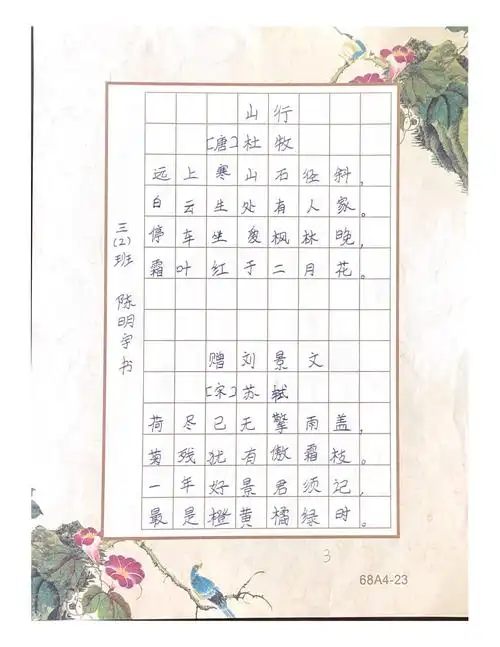 山行
[唐]杜牧
远上寒山石径斜，
白云生处有人家。
停车坐爱枫林晚，
霜叶红于二月花。
赠刘景文
[宋]苏轼
荷尽已无擎雨盖，
菊残犹有傲霜枝。
一年好景君须记，
最是橙黄橘绿时。
三(2)班 陈明宇书
3
68A4-23